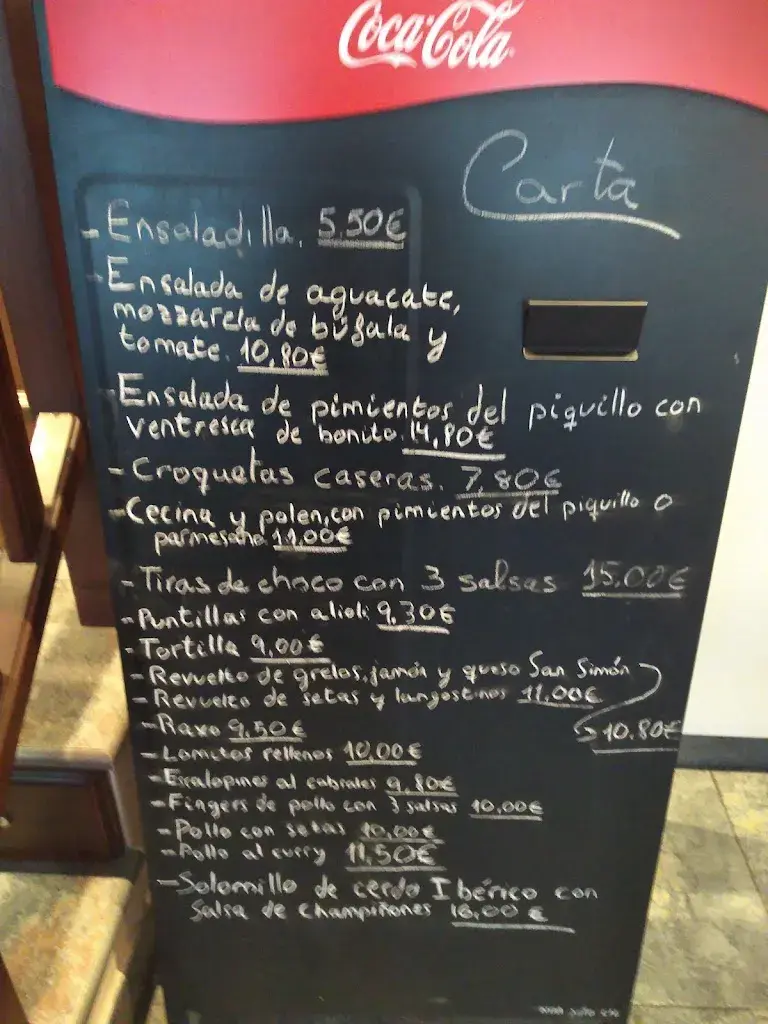 Coca-Cola
Carta
- Ensaladilla. 5,50€
- Ensalada de aguacate,
mozzarela de búfala y
tomate. 10,80€
Ensalada de pimientos del piquillo con
ventresca de bonito. 14,80€
- Croquetas caseras. 7,80€
- Cecina y polen, con pimientos del piquillo o
parmesano 11,00€
- Tiras de choco con 3 salsas 15,00€
- Puntillas con alioli 9,30€
- Tortilla 9,00€
- Revuelto de grelos, jamón y queso San Simón
- Revuelto de setas y langostinos 11,00€
- Raxo 9,50€
10.80€
- Lomitos rellenos 10,00€
- Escalopines al cabrales 9,80€
- Fingers de pollo con 3 salsas 10,00€
- Pollo con setas 10,00€
- Pollo al curry 11,50€
- Solomillo de cerdo Ibérico con
salsa de champiñones 16,00€